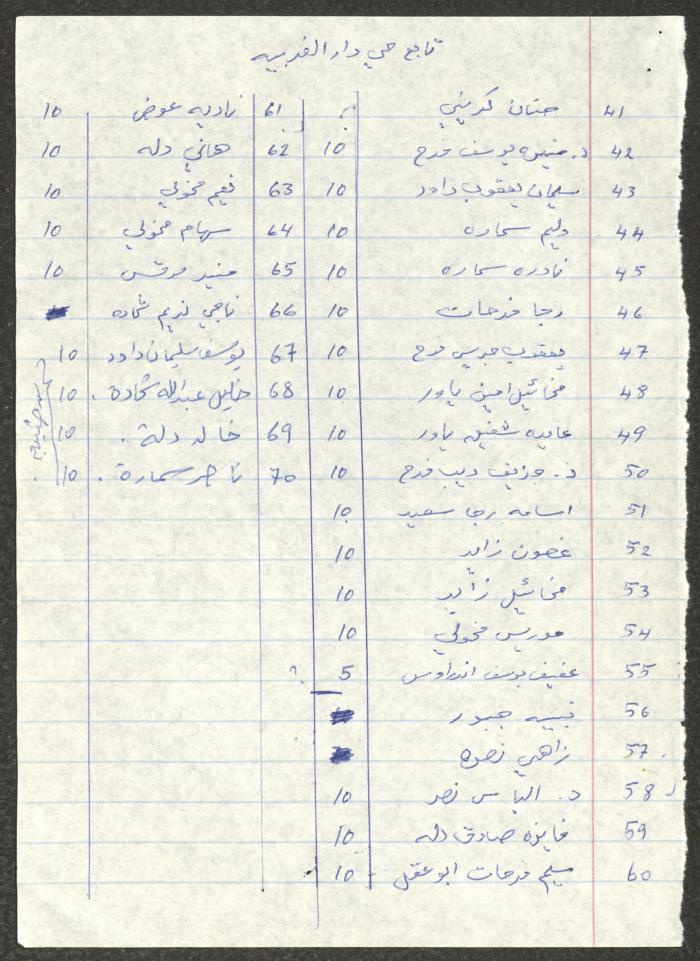 تابع حي دار الغربيه
41 حنان كريني
42 د. منيره يوسف فرح 10
43 سليمان يعقوب داود 10
44 وليم سماره 10
45 نادره سماره 10
46 رجا فرحات 10
47 يعقوب جريس فرح 10
48 مخائيل امين ياور 10
49 عايده شفيق ياور 10
50 د. جزيف ديب فرح 10
51 اسامه رجا سعيد 10
52 غصون زايد 10
53 مخائيل زايد 10
54 موريس مخولي 10
55 عفيف يوسف اندراوس 5 ?
56 نبيه جبور
57 زاهي نصره
58 د. الياس نصر 10
59 فايزه صادق دله 10
60 سليم فرحات ابو عقل 10
61 ناديه عوض 10
62 هاني دله 10
63 نعيم مخولي 10
64 سهام مخولي 10
65 منير مرقس 10
66 ناجي نديم شحاده
67 يوسف سليمان داود 10
68 خليل عبدالله شحادة . 10
69 خالد دلة . 10
70 ناصر سمارة . 10